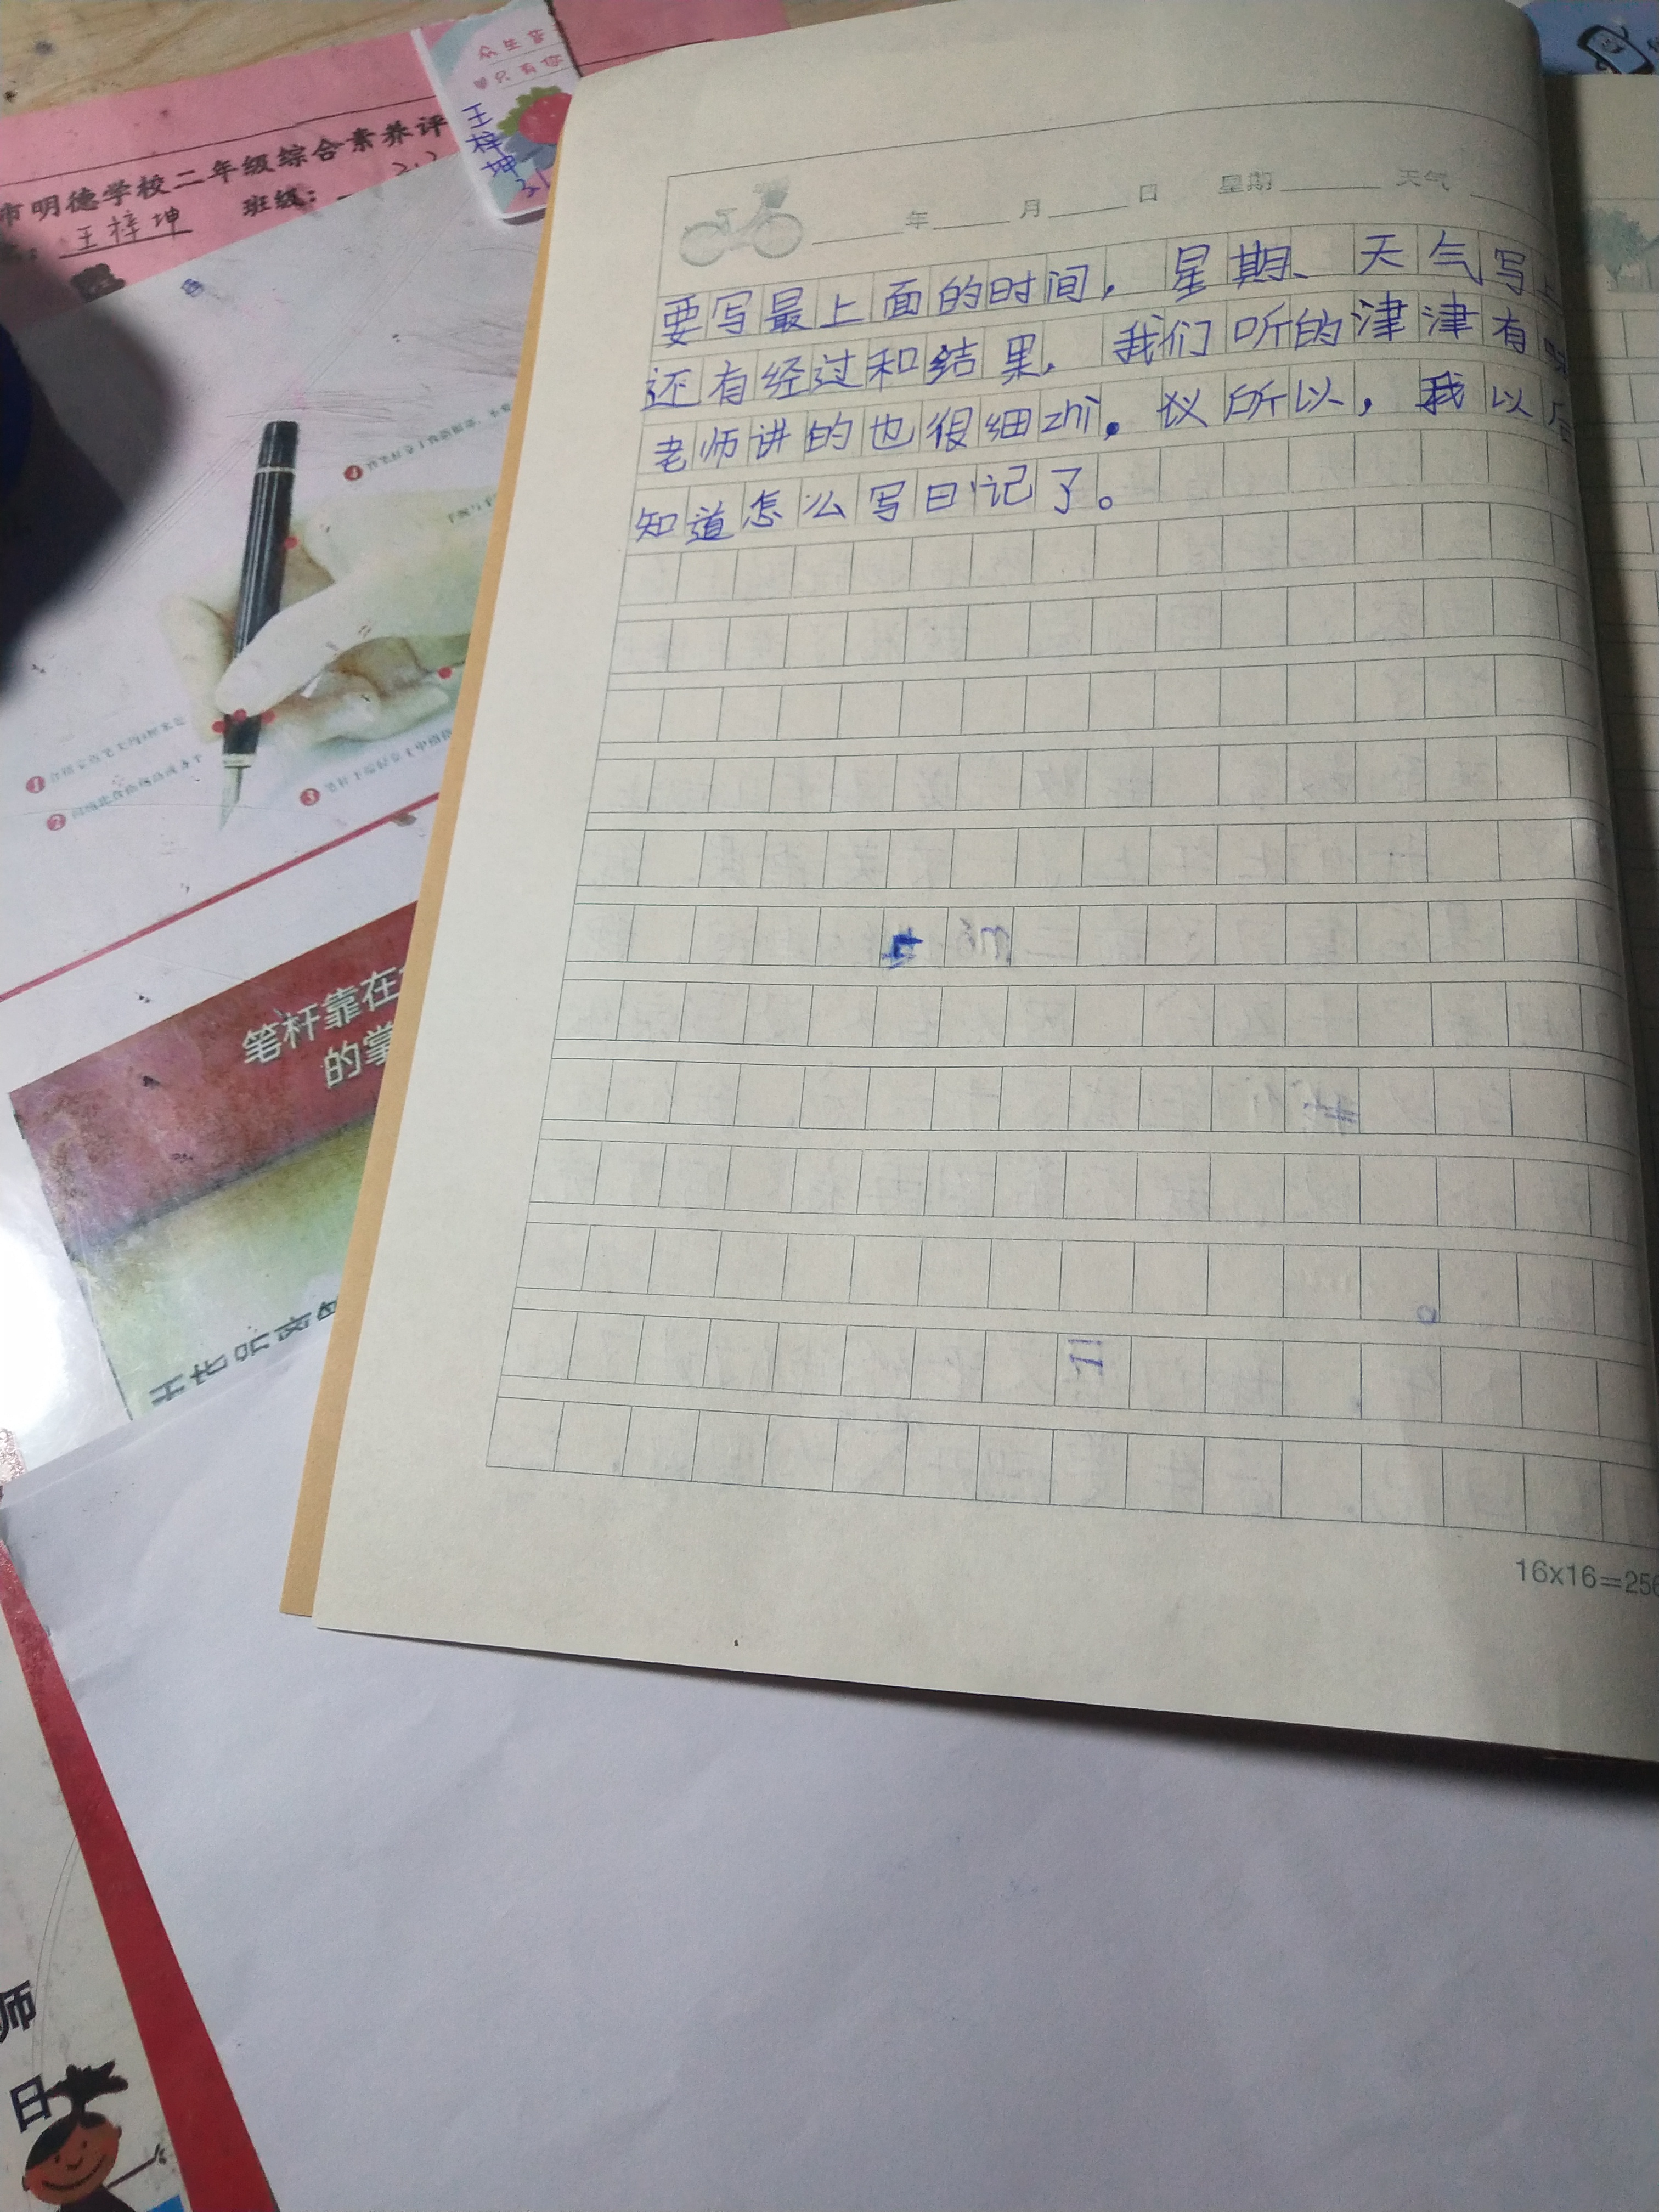 众生皆
只有你
王梓坤
市明德学校二年级综合素养评
王梓坤 班级:
年 月 日 星期 天气
要写最上面的时间，星期、天气写上
还有经过和结果，我们听的津津有味
老师讲的也很细zhì。议所以，我以后
知道怎么写日记了。
16x16=256
笔杆靠在
的掌
师
日